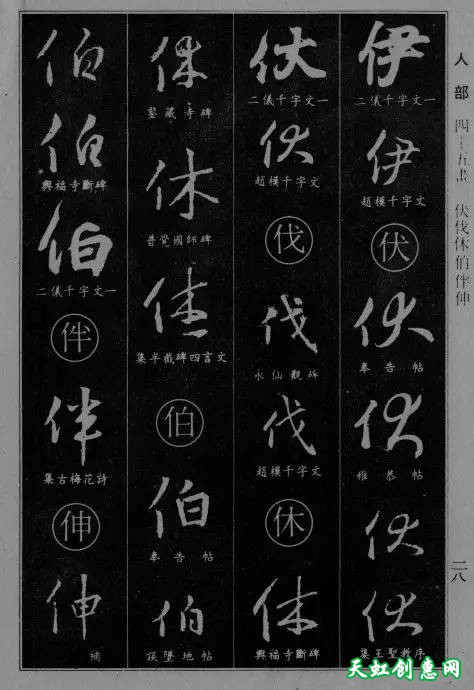 人部 四—五畫 伏伐休伯伴伸
伊
二儀千字文一
伊
趙模千字文
伏
伏
奉告帖
伏
雅恭帖
伏
伏
集王聖教序
伏
二儀千字文一
伏
趙模千字文
伐
伐
水仙觀碑
伐
趙模千字文
休
休
興福寺斷碑
休
鑒藏寺碑
休
普覺國師碑
休
集半截碑四言文
伯
伯
奉告帖
伯
墜地帖
伯
伯
興福寺斷碑
伯
二儀千字文一
伴
伴
集古梅花詩
伸
伸
補
二八
天虹创意网